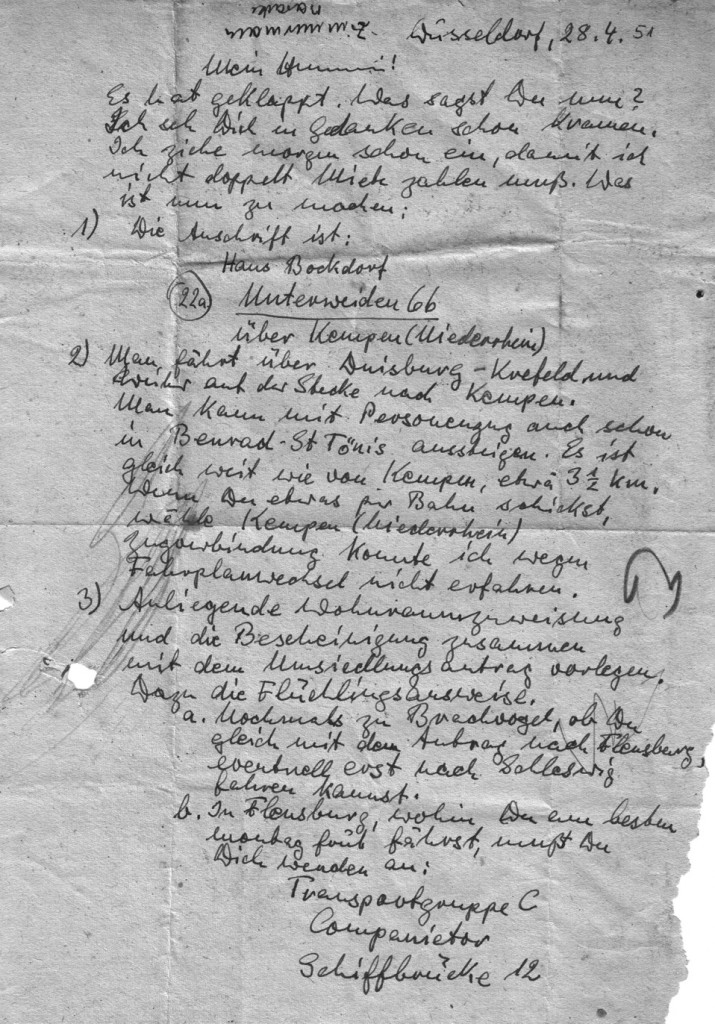 Zimmermann
Düsseldorf, 28.4.51
Mein
Es hat geklappt. Was sagst Du nun?
Ich seh Dich in Gedanken schon kramen.
Ich ziehe morgen schon ein, damit ich
nicht doppelt Miete zahlen muß. Was
ist nun zu machen:
1) Die Anschrift ist:
Hans Bockdorf
22a) Unterweiden 66
über Kempen (Niederrhein)
2) Man fährt über Duisburg-Krefeld und
weiter auf der Strecke nach Kempen.
Man kann mit Personenzug auch schon
in Benrad-St Tönis aussteigen. Es ist
gleich weit wie von Kempen, etwa 3 1/2 km.
Wenn Du etwas per Bahn schickst,
wähle Kempen (Niederrhein)
Zugverbindung konnte ich wegen
Fahrplanwechsel nicht erfahren.
3) Anliegende Wohnraumzuweisung
und die Bescheinigung zusammen
mit dem Umsiedlungsantrag vorlegen.
Dazu die Flüchlingsausweise.
a. Nochmals zu Brachvogel, ob Du
gleich mit dem Antrag nach Flensburg,
eventuell erst nach Schleswig
fahren kannst.
b. In Flensburg, wohin Du am besten
Montag früh fährst, mußt Du
Dich wenden an:
Transportgruppe C
Compenietor
Schiffbrücke 12